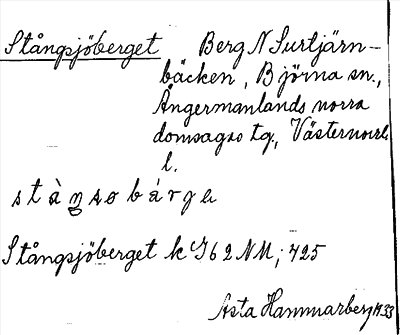 Stångsjöberget Berg N Surtjärn-
bäcken, Björna sn.,
Ångermanlands norra
domsagas tg., Västernorrl.
l.
Stångsjöberget k 762 NM; 425
Asta Hammarberg 1933